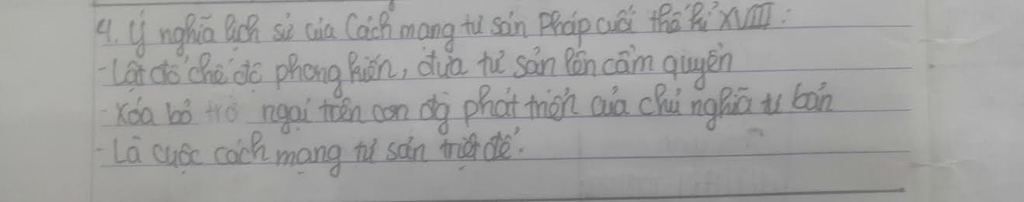 4. Ý nghĩa lịch sử của Cách mạng tư sản Pháp cuối thế kỉ XVIII:
- Lật đổ chế độ phong kiến, đưa tư sản lên cầm quyền
- Xóa bỏ trở ngại trên con đg phát triển của chủ nghĩa tư bản
- Là cuộc cách mạng tư sản triệt để.